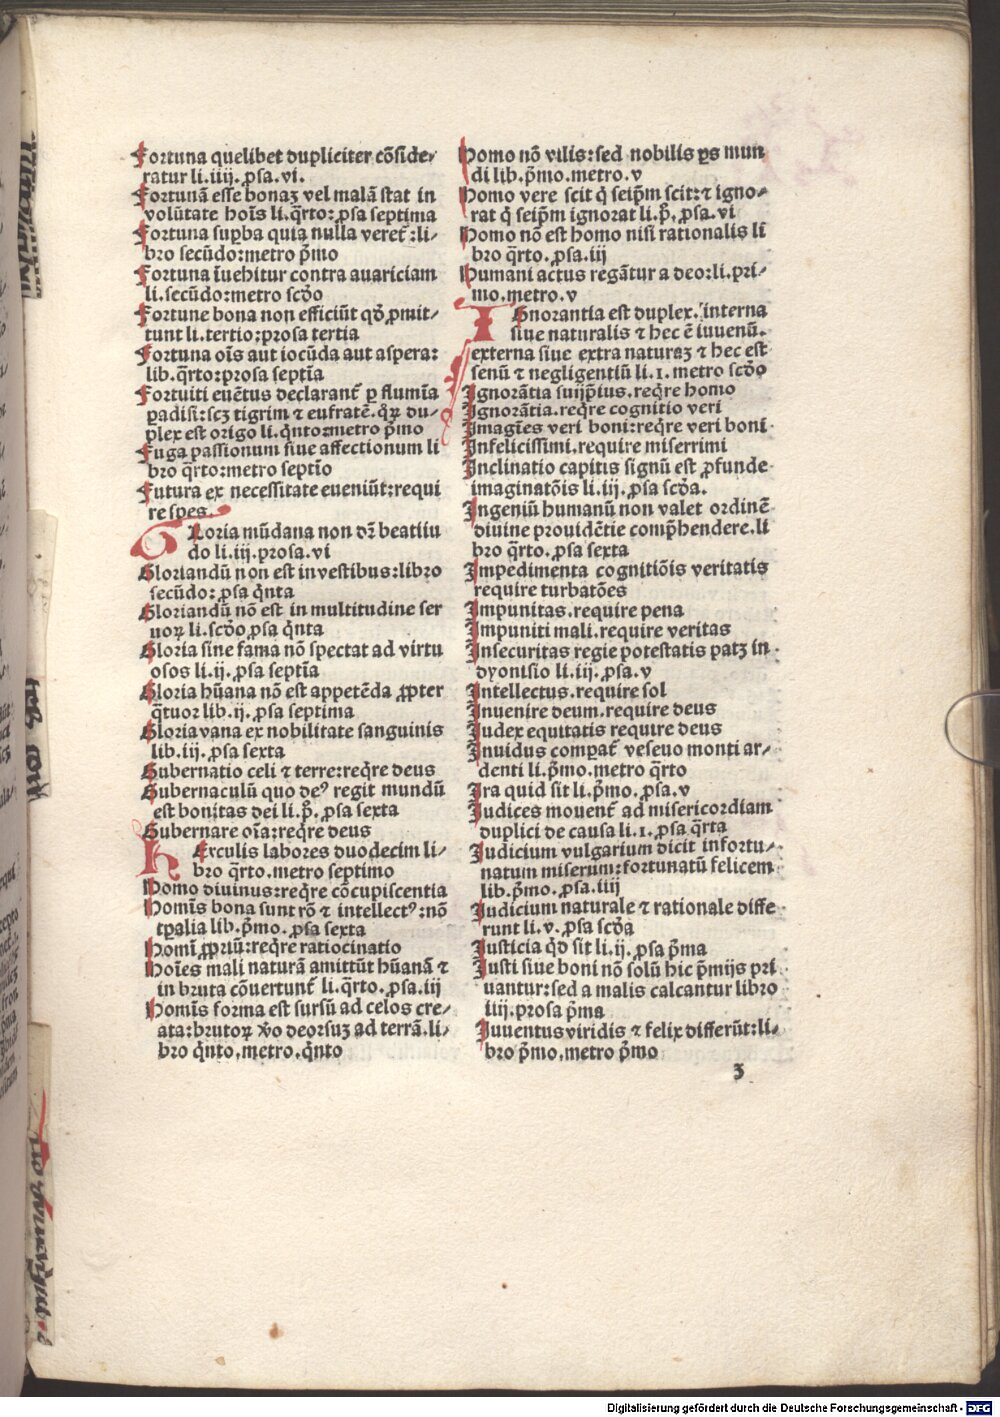 Fortuna quelibet dupliciter cõside⸗
ratur li. iiij. ꝓsa. vi.
Fortunã esse bonaꝫ vel malã stat in
volũtate hoĩs li. q̃rto: ꝓsa septima
Fortuna suꝑba quia nulla veret᷑: li⸗
bro secũdo: metro p̃mo
Fortuna ĩuehitur contra auariciam
li. secũdo: metro scd̃o
Fortune bona non efficiũt qd̃ ꝓmit⸗
tunt li. tertio: prosa tertia
Fortuna oĩs aut iocũda aut aspera:
lib. q̃rto: prosa septĩa
Fortuiti euẽtus declarant᷑ ꝑ flumĩa
ꝑadisi: scꝫ tigrim ⁊ eufratẽ. q̃ꝝ du⸗
plex est origo li. q̃nto: metro p̃mo
Fuga passionum siue affectionum li
bro q̃rto: metro septĩo
Futura ex necessitate eueniũt: requi
re spes.
Gloria mũdana non dr̃ beatitu
do li. iij. prosa. vi
Gloriandũ non est in vestibus: libro
secũdo: ꝓsa q̃nta
Gloriandũ nõ est in multitudine ser
uoꝝ li. scd̃o ꝓsa q̃nta
Gloria sine fama nõ spectat ad virtu
osos li. ij. ꝓsa septĩa
Gloria hũana nõ est appetẽda ꝓpter
q̃tuor lib. ij. ꝓsa septima
Gloria vana ex nobilitate sanguinis
lib. iij. ꝓsa sexta
Gubernatio celi ⁊ terre: reqr̃e deus
Gubernaculũ quo deꝰ regit mundũ
est bonitas dei li. p̃. ꝓsa sexta
Gubernare oĩa: reqr̃e deus
Herculis labores duodecim li⸗
bro q̃rto. metro septimo
Homo diuinus: reqr̃e cõcupiscentia
Homĩs bona sunt rõ ⁊ intellectꝰ: nõ
tꝑalia lib. p̃mo. ꝓsa sexta
Homĩ ꝓpriũ: reqr̃e ratiocinatio
Hoĩes mali naturã amittũt hũanã ⁊
in bruta cõuertunt᷑ li. q̃rto. ꝓsa. iij
Homĩs forma est sursũ ad celos cre⸗
ata: brutoꝝ ṽo deorsuꝫ ad terrã. li⸗
bro q̃nto. metro. q̃nto
Homo nõ vilis: sed nobilis ꝑs mun
di lib. p̃mo. metro. v
Homo vere scit q̃ seip̃m scit: ⁊ igno⸗
rat q̃ seip̃m ignorat li. p̃. ꝓsa. vi
Homo nõ est homo nisi rationalis li
bro q̃rto. ꝓsa. iij
Humani actus regãtur a deo: li. pri⸗
mo. metro. v
Ignorantia est duplex. interna
siue naturalis ⁊ hec ẽ iuuenũ.
externa siue extra naturaꝫ ⁊ hec est
senũ ⁊ negligentiũ li. 1. metro scd̃o
Ignorãtia suijp̃ius. reqr̃e homo
Ignorãtia. reqr̃e cognitio veri
Imagĩes veri boni: reqr̃e veri boni
Infelicissimi. require miserrimi
Inclinatio capitis signũ est ꝓfunde
imaginatõis li. iij. ꝓsa scd̃a.
Ingeniũ humanũ non valet ordinẽ
diuine prouidẽtie comp̃hendere. li
bro q̃rto. ꝓsa sexta
Impedimenta cognitiõis veritatis
require turbatões
Impunitas. require pena
Impuniti mali. require veritas
Insecuritas regie potestatis patꝫ in
dyonisio li. iij. ꝓsa. v
Intellectus. require sol
Inuenire deum. require deus
Iudex equitatis require deus
Inuidus compat᷑ veseuo monti ar⸗
denti li. p̃mo. metro q̃rto
Ira quid sit li. p̃mo. ꝓsa. v
Iudices mouent᷑ ad misericordiam
duplici de causa li. 1. ꝓsa q̃rta
Iudicium vulgarium dicit infortu⸗
natum miserum: fortunatũ felicem
lib. p̃mo. ꝓsa. iiij
Iudicium naturale ⁊ rationale diffe
runt li. v. ꝓsa scd̃a
Iusticia qd̃ sit li. ij. ꝓsa p̃ma
Iusti siue boni nõ solũ hic p̃mijs pri
uantur: sed a malis calcantur libro
iiij. prosa p̃ma
Iuuentus viridis ⁊ felix differũt: li⸗
bro p̃mo. metro p̃mo
3
Digitalisierung gefördert durch die Deutsche Forschungsgemeinschaft - DFG